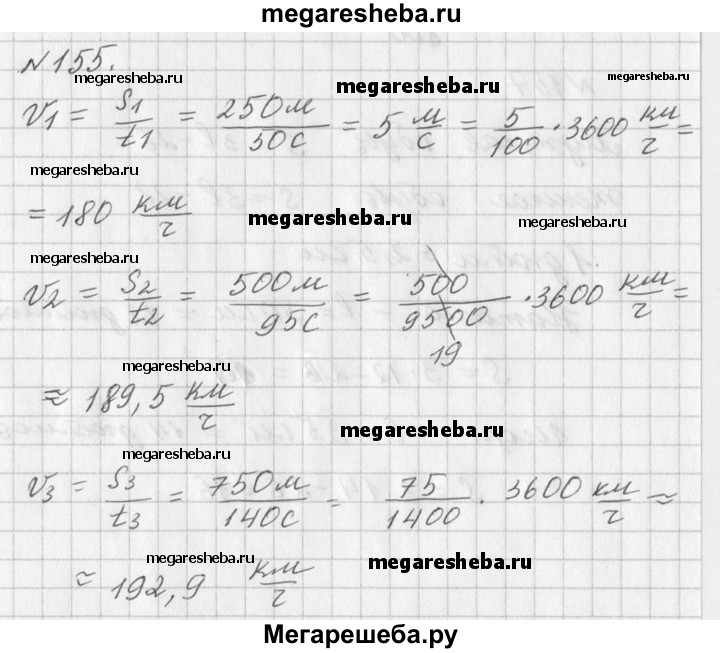 megaresheba.ru
№155.
megaresheba.ru megaresheba.ru megaresheba.ru
v1 = S1/t1 = 250м/50с = 5 м/с = 5/100 · 3600 км/ч =
megaresheba.ru megaresheba.ru
= 180 км/ч
megaresheba.ru megaresheba.ru
megaresheba.ru
v2 = S2/t2 = 500м/95с = 500/9500 · 3600 км/ч =
19
megaresheba.ru
≈ 189,5 км/ч
megaresheba.ru
megaresheba.ru
v3 = S3/t3 = 750м/140с = 75/1400 · 3600 км/ч ≈
megaresheba.ru megaresheba.ru
≈ 192,9 км/ч
Мегарешеба.ру